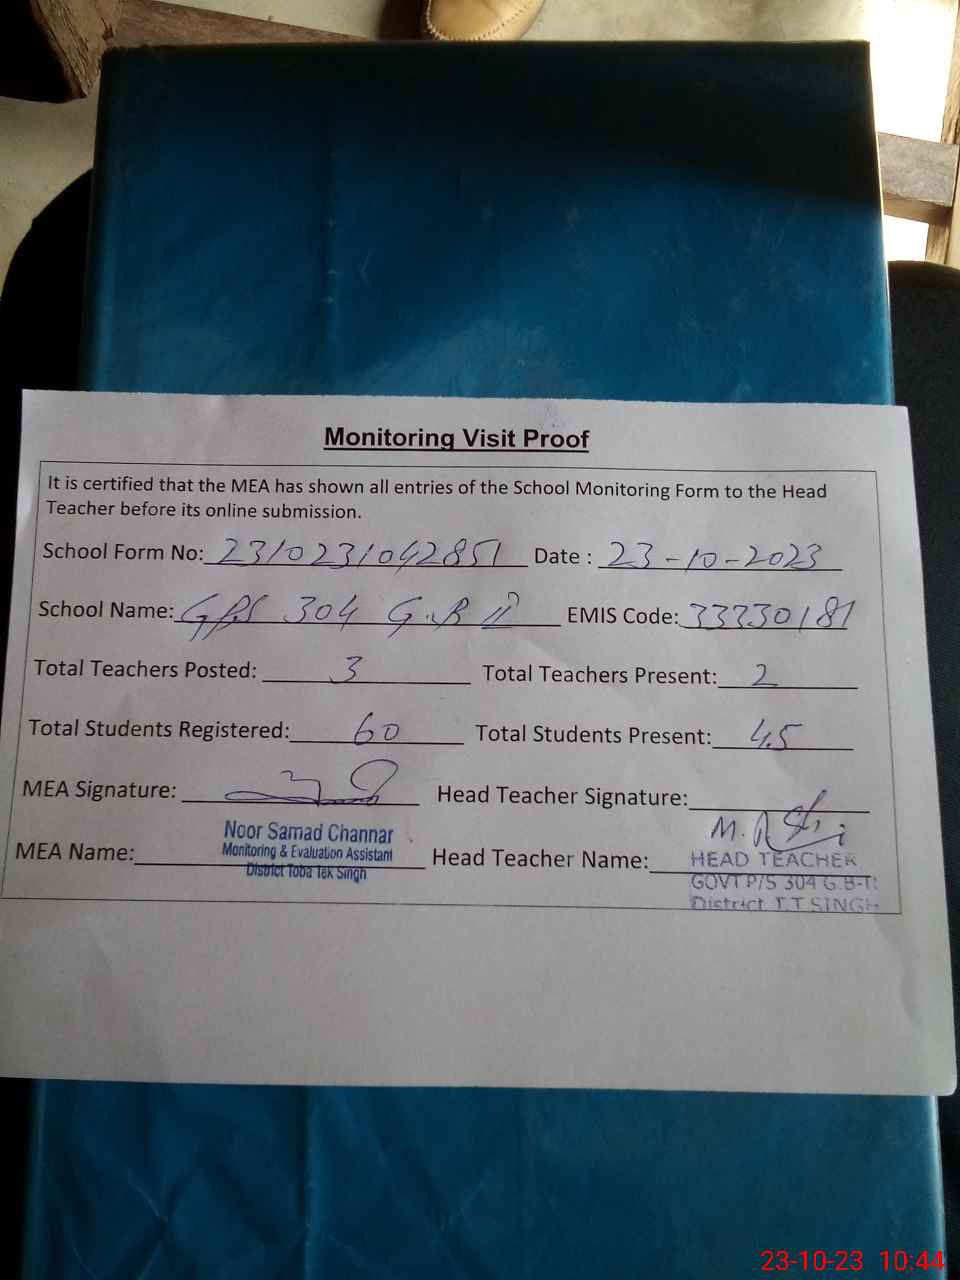 Monitoring Visit Proof
It is certified that the MEA has shown all entries of the School Monitoring Form to the Head
Teacher before its online submission.
School Form No: 2310231042851 Date : 23-10-2023
School Name: GPS 304 G.B II EMIS Code: 33330181
Total Teachers Posted: 3 Total Teachers Present: 2
Total Students Registered: 60 Total Students Present: 45
MEA Signature: Head Teacher Signature:
Noor Samad Channar
Monitoring & Evaluation Assistant
District Toba Tek Singh
MEA Name: Head Teacher Name:
HEAD TEACHER
GOVT P/S 304 G.B-
District T.T SINGH
23-10-23 10:44